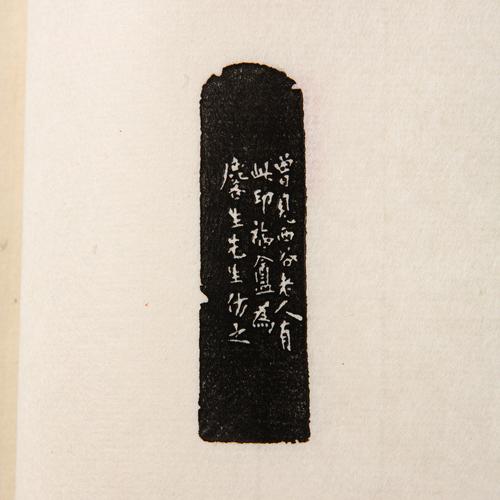 曾見西谷老人有
此印福盦為
鹿生先生仿之